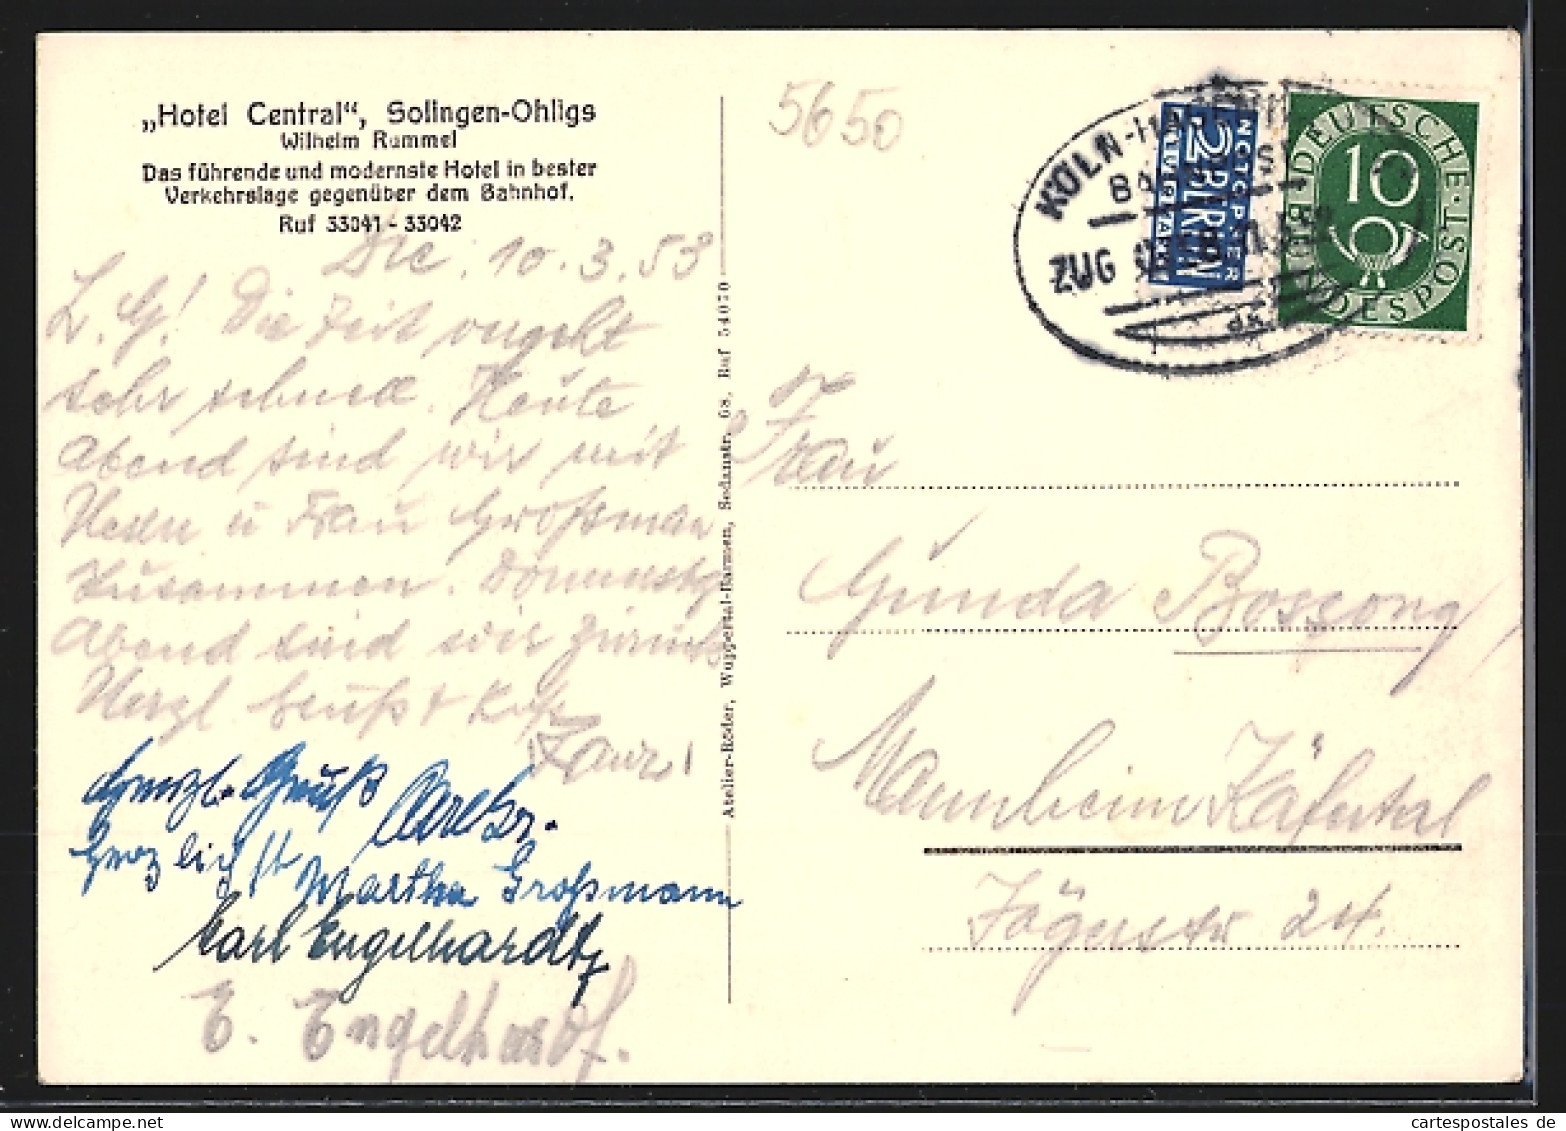 „Hotel Central“, Solingen-Ohligs
Wilhelm Rummel
Das führende und modernste Hotel in bester
Verkehrslage gegenüber dem Bahnhof.
Ruf 33041 - 33042
Die. 10.3.53
L. G! Die Zeit vergeht
sehr schnell. Heute
Abend sind wir mit
Herrn u Frau Großmann
zusammen. Donnerstg
Abend sind wir zurück
Herzl. Gruß +
Herzl. Gruß
Herzlichst Martha Großmann
Carl Engelhardt
E. Engelhardt.
Atelier-Röder, Wuppertal-Barmen, Sedanstr. 68, Ruf 54070
5650
KÖLN-
ZUG
NOTOPFER
2 BERLIN
STEUERMARKE
DEUTSCHE BUNDESPOST
10
Frau
Gunda Bossong,
Mannheim Käfertal
Jägerstr 24.
cartespostales.de
cartespostales.de